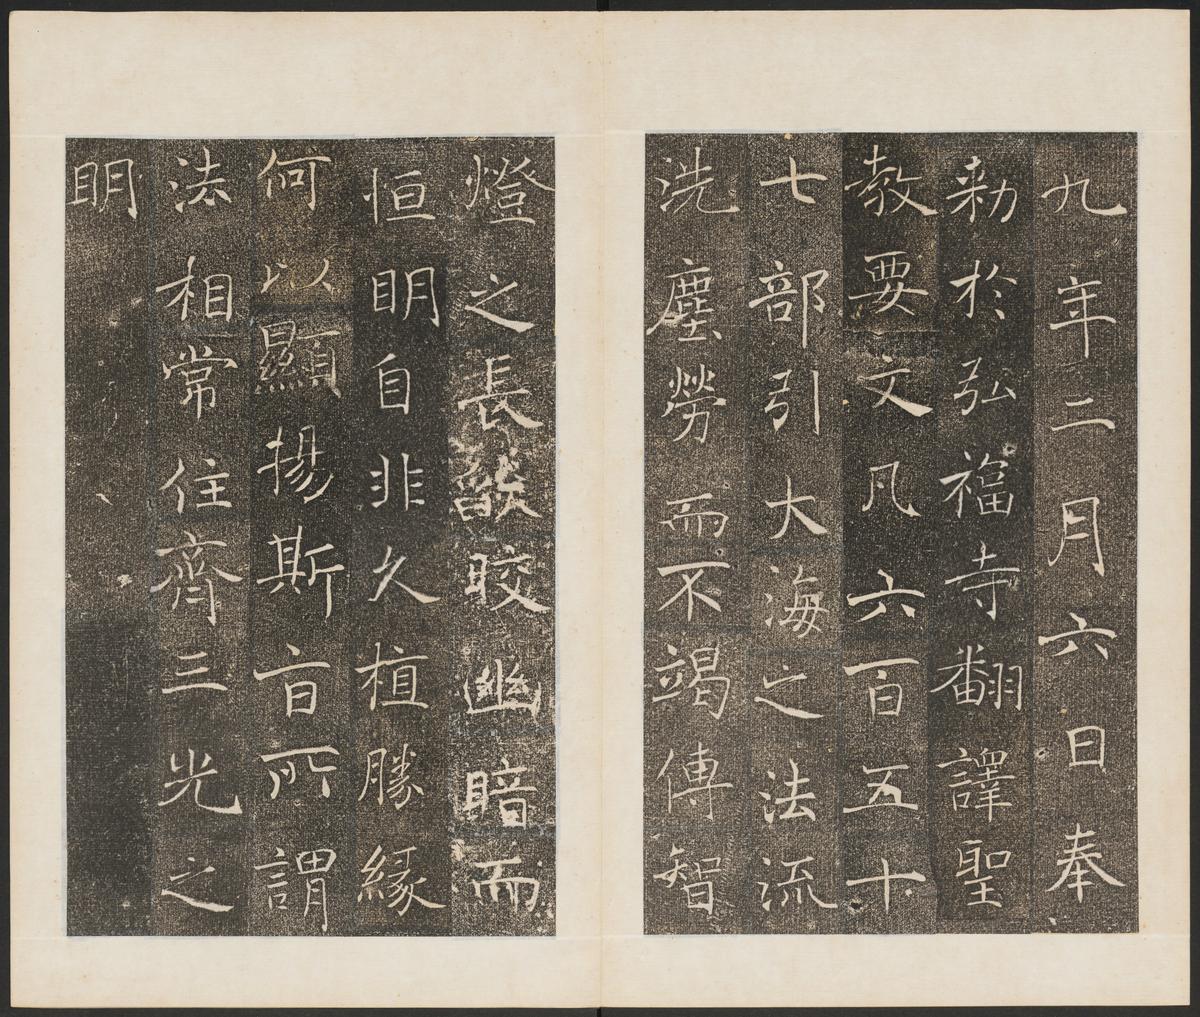 九年二月六日奉
勑於弘福寺翻譯聖
教要文凡六百五十
七部引大海之法流
洗塵勞而不竭傳智
燈之長燄晈幽暗而
恒明自非久植勝緣
何以顯揚斯旨所謂
法相常住齊三光之
明